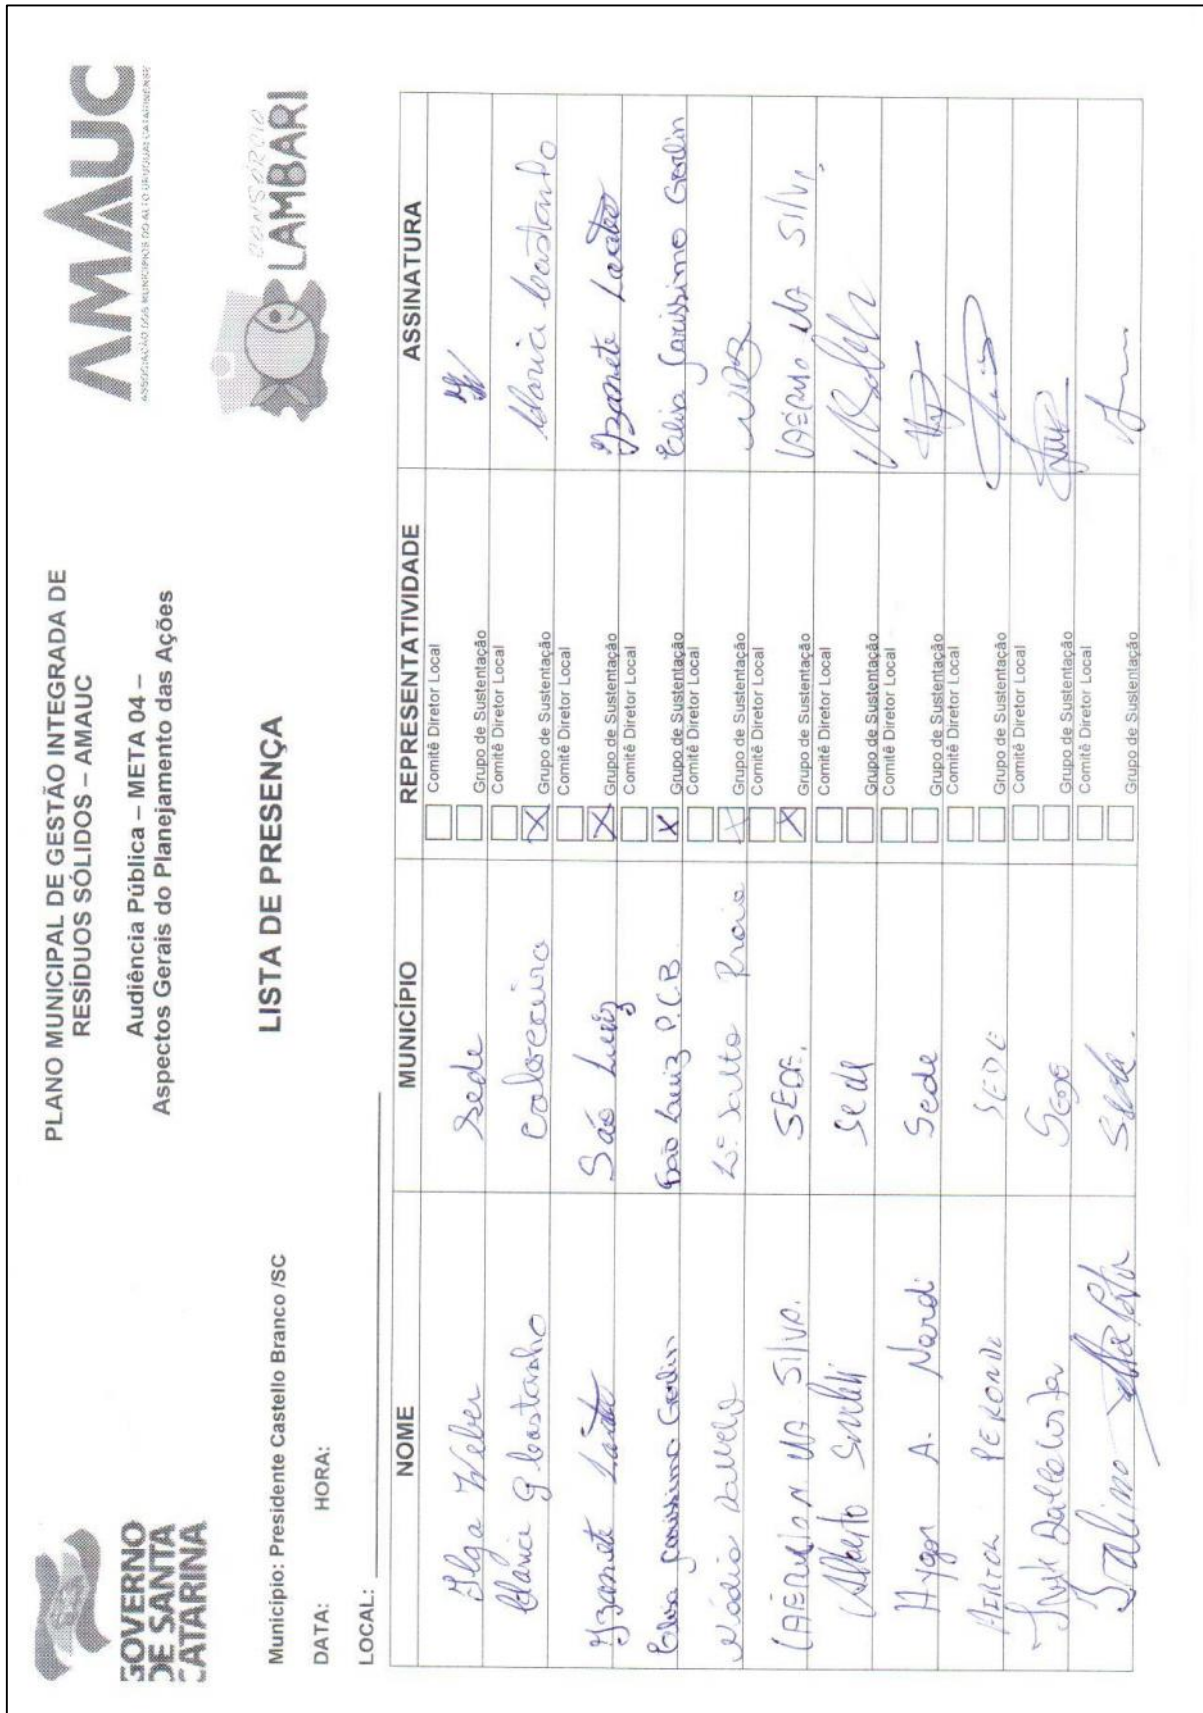 GOVERNO
DE SANTA
CATARINA
PLANO MUNICIPAL DE GESTÃO INTEGRADA DE
RESÍDUOS SÓLIDOS – AMAUC
Audiência Pública – META 04 –
Aspectos Gerais do Planejamento das Ações
AMAUC
ASSOCIAÇÃO DOS MUNICÍPIOS DO ALTO URUGUAI CATARINENSE
CONSÓRCIO
LAMBARI
LISTA DE PRESENÇA
Município: Presidente Castello Branco /SC
DATA: HORA:
LOCAL:
NOME MUNICÍPIO REPRESENTATIVIDADE ASSINATURA
Ilga Weber Sede Comitê Diretor Local
Grupo de Sustentação
Clarice G Castanho Comitê Diretor Local Castanho
X Grupo de Sustentação
Izanete São Luiz Comitê Diretor Local Izanete
X Grupo de Sustentação
Carissimo Gerlin São Luiz P.C.B. Comitê Diretor Local Carissimo Gerlin
X Grupo de Sustentação
Nádia Salto Comitê Diretor Local
X Grupo de Sustentação
SILVA SEDE. Comitê Diretor Local SILVA
X Grupo de Sustentação
Alberto Sede Comitê Diretor Local
Grupo de Sustentação
Hygor A. Nardi Sede Comitê Diretor Local
Grupo de Sustentação
AIRTON PERONDI SEDE Comitê Diretor Local
Grupo de Sustentação
Dalla Costa Sede Comitê Diretor Local
Grupo de Sustentação
Sede. Comitê Diretor Local
Grupo de Sustentação